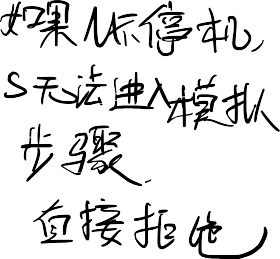 如果M不停机,
S无法进入模拟
步骤.
直接拒绝